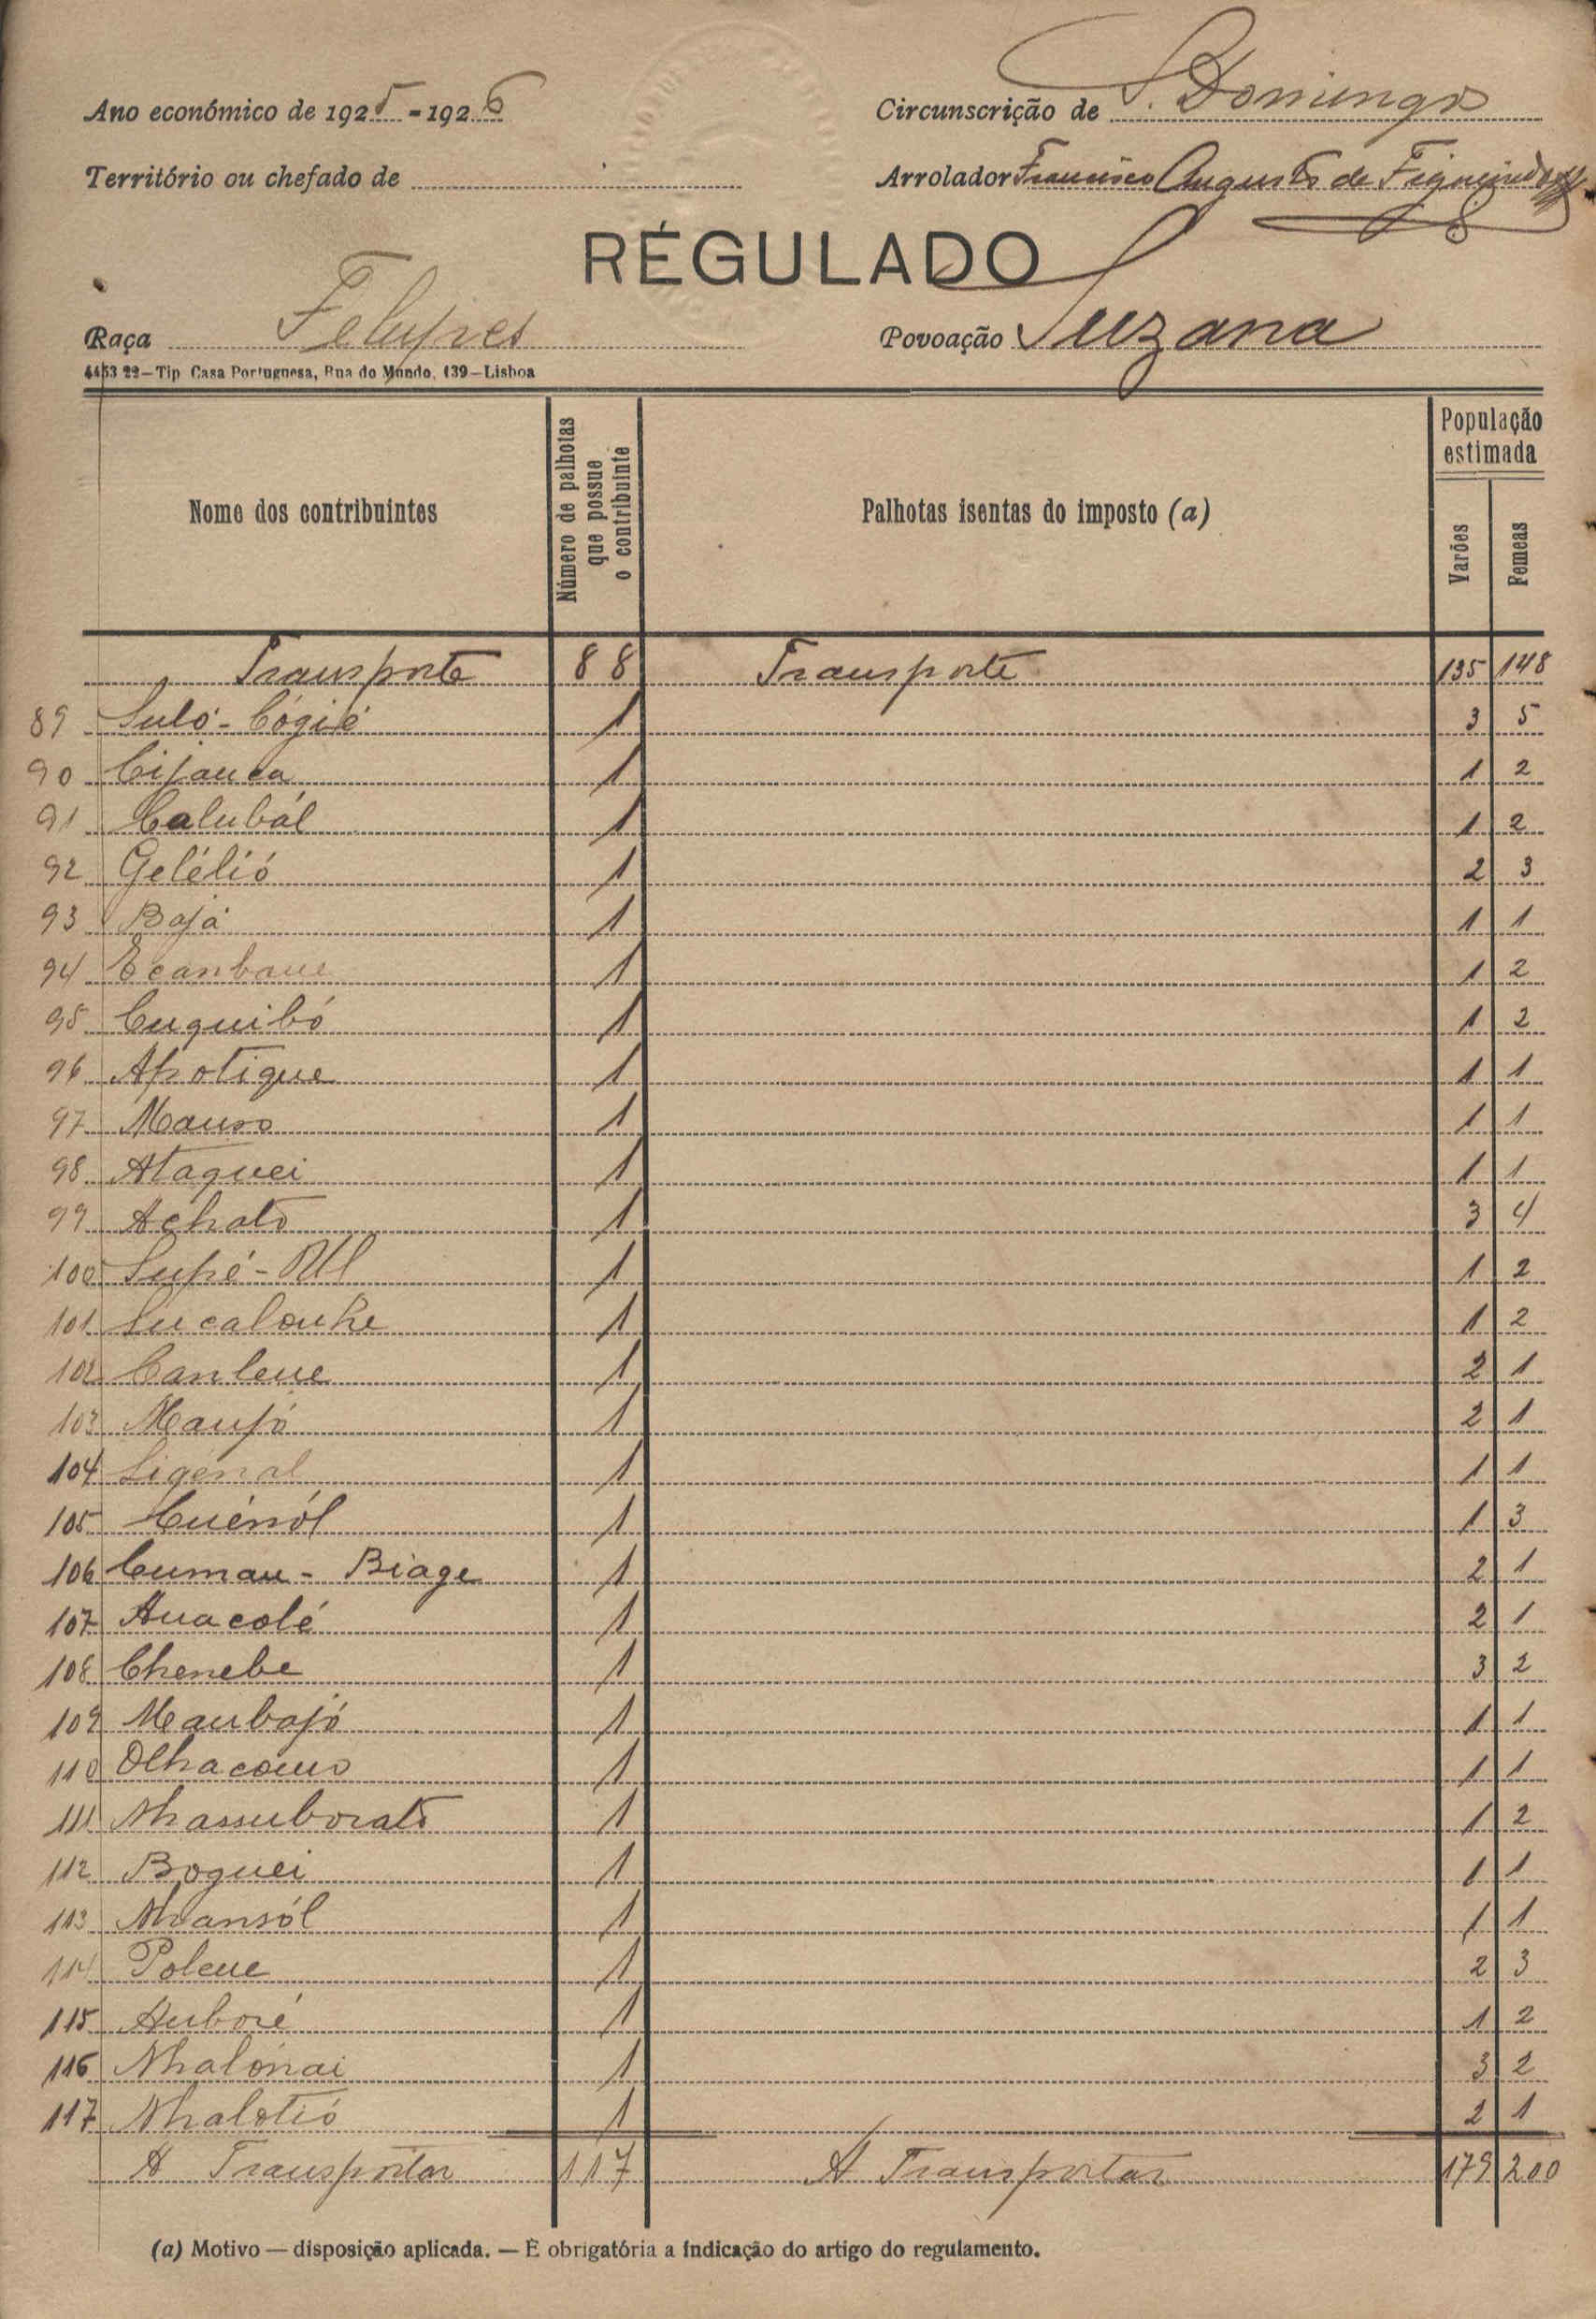 Ano económico de 1925-1926
Circunscrição de S. Domingos
Território ou chefado de
Arrolador Francisco Augusto de Figueiredo
RÉGULADO
Raça Felupes
Povoação Suzana
4453 22—Tip Casa Portuguesa, Rua do Mundo, 139—Lisboa
Nome dos contribuintes
Número de palhotas que possue o contribuinte
Palhotas isentas do imposto (a)
População estimada
Varões
Femeas
Transporte 88 Transporte 135 148
89 Suló-Cógié 1 3 5
90 Cijanca 1 1 2
91 Calubál 1 1 2
92 Gelélió 1 2 3
93 Bajá 1 1 1
94 Ecanbaue 1 1 2
95 Cuquibó 1 1 2
96 Apotique 1 1 1
97 Mauso 1 1 1
98 Ataquei 1 1 1
99 Achato 1 3 4
100 Supé- 1 1 2
101 Sucalouke 1 1 2
102 Canleue 1 2 1
103 Maujó 1 2 1
104 Sigénal 1 1 1
105 Cuénól 1 1 3
106 Cumau- Biage 1 2 1
107 Auacolé 1 2 1
108 Chenebe 1 3 2
109 Maubajó 1 1 1
110 Olhacouso 1 1 1
111 Nhassuborato 1 1 2
112 Boguei 1 1 1
113 Nhansól 1 1 1
114 Poleue 1 2 3
115 Auboré 1 1 2
116 Nhalónai 1 3 2
117 Nhalotió 1 2 1
A Transportar 117 A Transportar 179 200
(a) Motivo — disposição aplicada. — É obrigatória a indicação do artigo do regulamento.